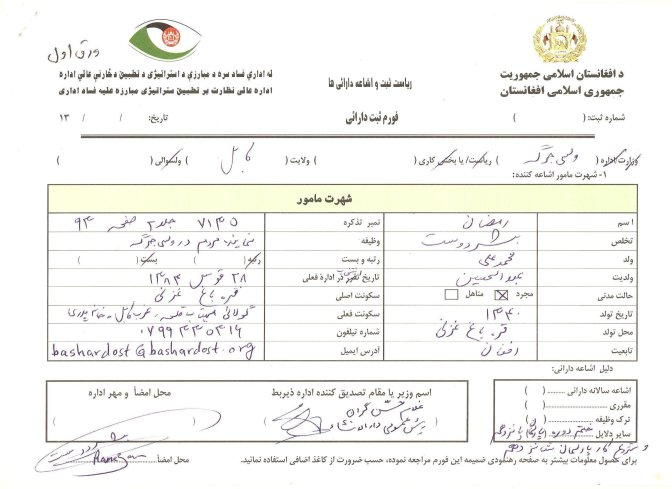 ورق اول
د افغانستان اسلامی جمهوریت
جمهوری اسلامی افغانستان
ریاست ثبت و اشاعه دارائی ها
له اداري فساد سره د مبارزې د استراتیژۍ د تطبیق د څارنې عالي اداره
اداره عالی نظارت بر تطبیق ستراتیژی مبارزه علیه فساد اداری
شماره ثبت: ( )
فورم ثبت دارائی
تاریخ: / / ۱۳
وزارت/اداره ( ولسی جرگه ) ریاست/ یا بخش کاری ( ) ولایت ( کابل ) ولسوالی ( )
۱- شهرت مامور اشاعه کننده:
شهرت مامور
اسم رمضان نمبر تذکره ۷۱۴۵ جلد ۲ صفحه ۹۴
تخلص بشردوست وظیفه نماینده مردم در ولسی جرگه
ولد محمد علی رتبه و بست رتبه( ) بست( )
ولدیت تاریخ تقرر در ادارهٔ فعلی ۲۸ قوس ۱۳۸۴
حالت مدنی مجرد متاهل سکونت اصلی قره باغ غزنی
تاریخ تولد ۱۳۴۰ سکونت فعلی
محل تولد قره باغ غزنی شماره تیلفون ۰۷۹۹۴۴۵۴۱۶
تابعیت افغان آدرس ایمیل bashardost@bashardost.org
دلیل اشاعه دارائی:
اشاعه سالانه دارائی ( )
مقرری ( )
ترک وظیفه ( )
سایر دلایل
اسم وزیر یا مقام تصدیق کننده اداره ذیربط
محل امضأ و مهر اداره
محل امضأ
Ramazan
برای حصول معلومات بیشتر به صفحه رهنمودی ضمیمه این فورم مراجعه نموده، حسب ضرورت از کاغذ اضافی استفاده نمائید.